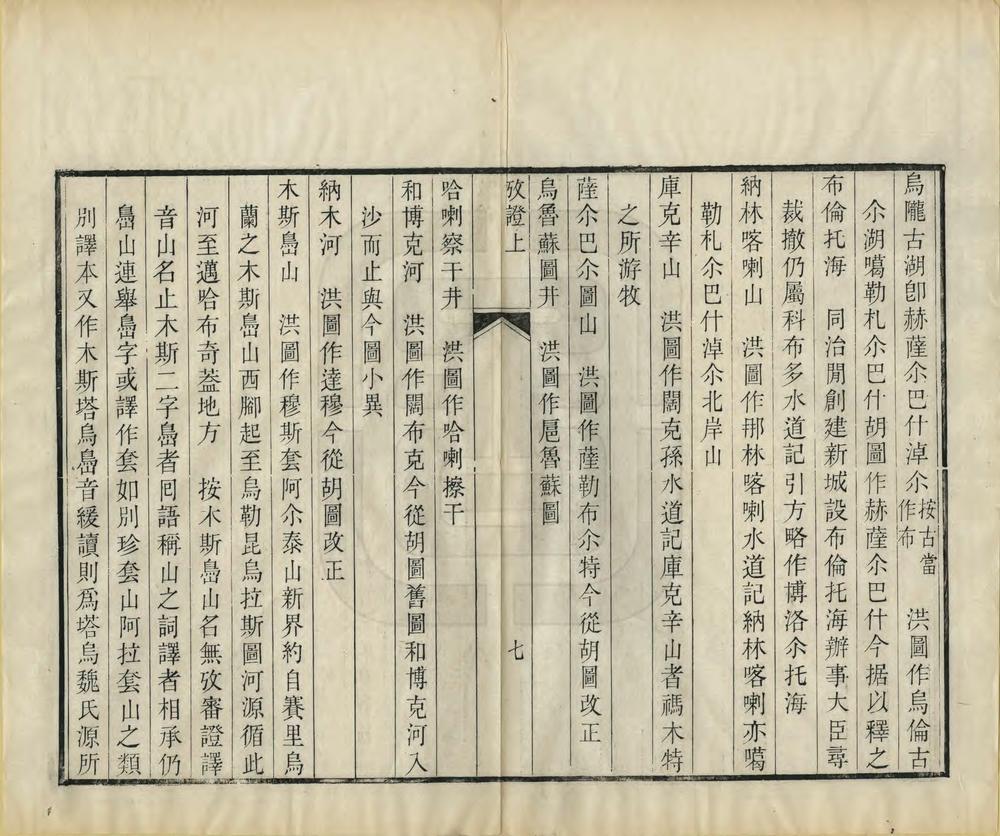 烏隴古湖卽赫薩尒巴什淖尒按古當作布　洪圖作烏倫古
尒湖噶勒札尒巴什胡圖作赫薩尒巴什今据以釋之
布倫托海　同治閒創建新城設布倫托海辦事大臣尋
裁撤仍屬科布多水道記引方略作博洛尒托海
納林喀喇山　洪圖作那林喀喇水道記納林喀喇亦噶
勒札尒巴什淖尒北岸山
庫克辛山　洪圖作闊克孫水道記庫克辛山者禡木特
之所游牧
薩尒巴尒圖山　洪圖作薩勒布尒特今從胡圖改正
烏魯蘇圖井　洪圖作扈魯蘇圖
攷證上　七
哈喇察干井　洪圖作哈喇擦干
和博克河　洪圖作闊布克今從胡圖舊圖和博克河入
沙而止與今圖小異
納木河　洪圖作達穆今從胡圖改正
木斯嶌山　洪圖作穆斯套阿尒泰山新界約自賽里烏
蘭之木斯嶌山西腳起至烏勒昆烏拉斯圖河源循此
河至邁哈布奇蓋地方　按木斯嶌山名無攷審證譯
音山名止木斯二字嶌者囘語稱山之詞譯者相承仍
嶌山連舉嶌字或譯作套如別珍套山阿拉套山之類
別譯本又作木斯塔烏嶌音緩讀則爲塔烏魏氏源所